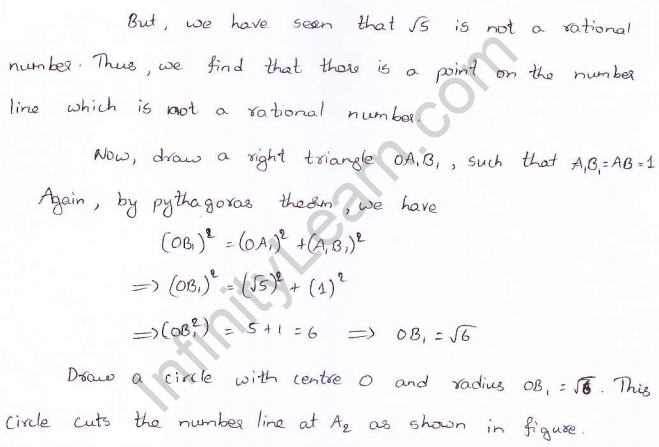 But, we have seen that √5 is not a rational
number. Thus, we find that there is a point on the number
line which is not a rational number.
Now, draw a right triangle OA₁B₁, such that A₁B₁=AB=1
Again, by pythagoras theorem, we have
(OB₁)² = (OA₁)² + (A₁B₁)²
⇒ (OB₁)² = (√5)² + (1)²
⇒ (OB₁²) = 5+1 = 6 ⇒ OB₁ = √6
Draw a circle with centre O and radius OB₁ = √6. This
circle cuts the number line at A₂ as shown in figure.
InfinityLearn.com